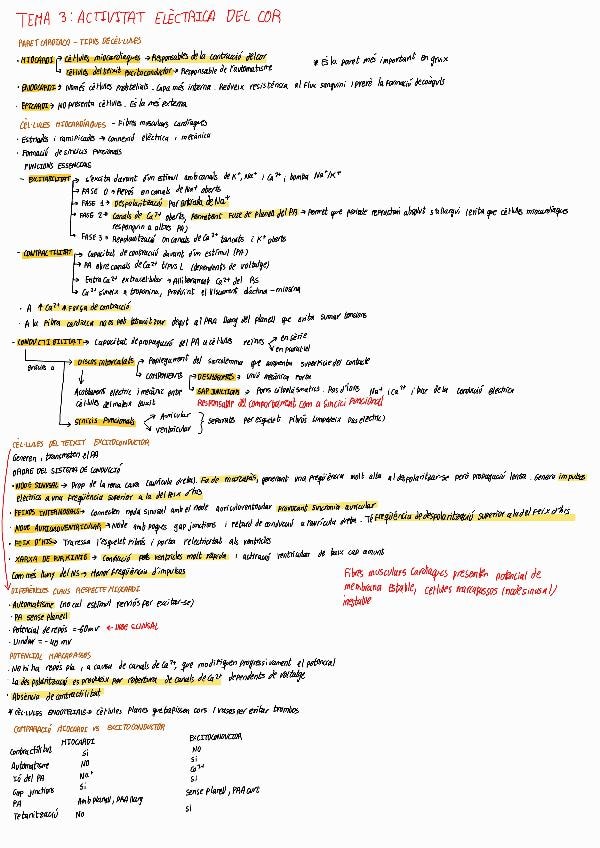 TEMA 3: ACTIVITAT ELÈCTRICA DEL COR
PARET CARDIACA - TIPUS DE CÈL·LULES
· MIOCARDI → Cèl·lules miocardiaques → Responsables de la contracció del cor
→ Cèl·lules del teixit excitoconductor → Responsable de l'automatisme
* És la paret més important en gruix
· ENDOCARDI → Només cèl·lules endotelials. Capa més interna. Redueix resistència al flux sanguini i prevé la formació de coàguls
· EPICARDI → No presenta cèl·lules. És la més externa
CÈL·LULES MIOCARDÍAQUES - Fibres musculars cardíaques
· Estriades i ramificades → connexió elèctrica i mecànica
· Formació de sincicis funcionals
FUNCIONS ESSENCIALS
- EXCITABILITAT → s'excita davant d'un estímul amb canals de K+, Na+ i Ca2+ i bomba Na+/K+
→ FASE 0 → Repòs en canals de Na+ oberts
→ FASE 1 → Despolarització per entrada de Na+
→ FASE 2 → Canals de Ca2+ oberts, permetent fase de planell del PA → Permet que període refractari absolut s'allargui (evita que cèl·lules miocardíaques
responguin a altres PA)
→ FASE 3 → Repolarització en canals de Ca2+ tancats i K+ oberts
- CONTRACTILITAT → Capacitat de contracció davant d'un estímul (PA)
→ PA obre canals de Ca2+ tipus L (dependents de voltatge)
→ Entra Ca2+ extracel·lular → Alliberament Ca2+ del RS
→ Ca2+ s'uneix a troponina, produint el lliscament d'actina - miosina
· A ↑ Ca2+ ↑ força de contracció
· A la fibra cardíaca no es pot tetanitzar degut al PRA llarg del planell que evita sumar tensions
- CONDUCTIBILITAT → Capacitat de propagació del PA a cèl·lules veïnes → en sèrie
→ en paral·lel
Gràcies a → Discos intercalats → Replegament del sarcolemma que augmenta superfície del contacte
→ COMPONENTS → DESMOSOMES → Unió mecànica forta
→ GAP JUNCTIONS → Porus citoplasmàtics. Pas d'ions Na+ i Ca2+ i pas de la conducció elèctrica
Acoblament elèctric i mecànic entre
cèl·lules del mateix teixit
Responsable del comportament com a sincici funcional
→ Sincicis funcionals → Auricular
→ ventricular
Separats per esquelet fibrós (impedeix pas elèctric)
CÈL·LULES DEL TEIXIT EXCITOCONDUCTOR
Generen i transmeten el PA
ORDRE DEL SISTEMA DE CONDUCCIÓ
· NODE SINUSAL → Prop de la vena cava (aurícula dreta). Fa de marcapàs, generant una freqüència molt alta al despolaritzar-se però propagació lenta. Genera impulsos
elèctrics a una freqüència superior a la del Feix d'his
· FEIXOS INTERNODALS → Connecten node sinusal amb el node auriculoventricular provocant sincronia auricular
· NODE AURICULOVENTRICULAR → Node amb poques gap junctions i retard de conducció a l'aurícula dreta. Té freqüència de despolarització superior a la del Feix d'his
· FEIX D'HIS → Travessa l'esquelet fibrós i porta l'electricitat als ventricles
· XARXA DE PURKINJE → Conducció pels ventricles molt ràpida i activació ventricular de baix cap amunt
Com més lluny del NS → Menor freqüència d'impulsos
DIFERÈNCIES CLAUS RESPECTE MIOCARDI
· Automatisme (no cal estímul nerviós per excitar-se)
· PA sense planell
· Potencial de repòs = -60mv ← NODE SINUSAL
· Llindar = -40 mv
Fibres musculars cardíaques presenten potencial de
membrana estable, cèl·lules marcapassos (node sinusal)
inestable
POTENCIAL MARCAPASSOS
· No hi ha repòs fix, a causa de canals de Ca2+, que modifiquen progressivament el potencial
· La despolarització es produeix per obertura de canals de Ca2+ dependents de voltatge
· Absència de contractilitat
* CÈL·LULES ENDOTELIALS → Cèl·lules planes que tapissen cors i vasos per evitar trombos
COMPARACIÓ MIOCARDI VS EXCITOCONDUCTOR
MIOCARDI EXCITOCONDUCTOR
Contractilitat Sí NO
Automatisme NO Sí
Ió del PA Na+ Ca2+
Gap junctions Sí Sí
PA Amb planell, PRA llarg sense planell, PRA curt
Tetanització No Sí